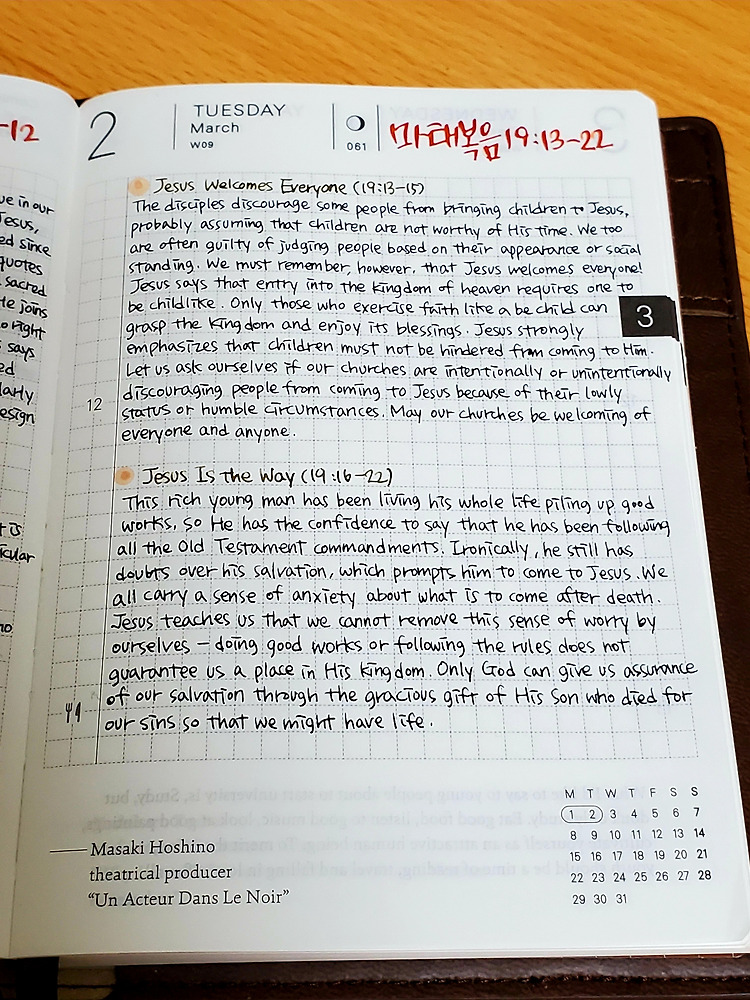 -12
ve in our
Jesus,
ed since
quotes
sacred
te joins
o right
says
ed
larly
esign
icular
2
TUESDAY
March
W09
061
마태복음 19:13-22
Jesus Welcomes Everyone (19:13-15)
The disciples discourage some people from bringing children to Jesus,
probably assuming that children are not worthy of His time. We too
are often guilty of judging people based on their appearance or social
standing. We must remember, however, that Jesus welcomes everyone!
Jesus says that entry into the kingdom of heaven requires one to
be childlike. Only those who exercise faith like a be child can
grasp the kingdom and enjoy its blessings. Jesus strongly
emphasizes that children must not be hindered from coming to Him.
Let us ask ourselves if our churches are intentionally or unintentionally
discouraging people from coming to Jesus because of their lowly
status or humble circumstances. May our churches be welcoming of
everyone and anyone.
3
12
Jesus Is the Way (19:16-22)
This rich young man has been living his whole life piling up good
works, so He has the confidence to say that he has been following
all the Old Testament commandments. Ironically, he still has
doubts over his salvation, which prompts him to come to Jesus. We
all carry a sense of anxiety about what is to come after death.
Jesus teaches us that we cannot remove this sense of worry by
ourselves – doing good works or following the rules does not
guarantee us a place in His kingdom. Only God can give us assurance
of our salvation through the gracious gift of His Son who died for
our sins so that we might have life.
Masaki Hoshino
theatrical producer
"Un Acteur Dans Le Noir"
M T W T F S S
1 2 3 4 5 6 7
8 9 10 11 12 13 14
15 16 17 18 19 20 21
22 23 24 25 26 27 28
29 30 31